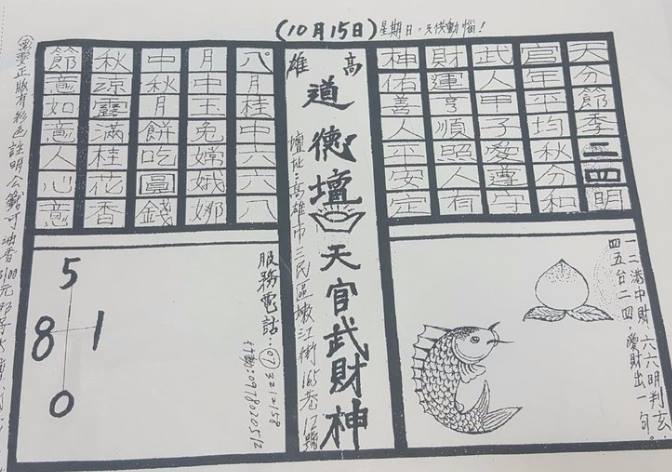 (10月15日)星期日,天供動惱!
天官武財神
分年人運佑
節平甲亨善
季均子順人
二秋愛照平
四分遵人安
明和守有定
一二港中財,六六明判玄
四五台二四,慶財出一句。
高雄
道德壇
天官武財神
壇址:高雄市三民區嫩江街165巷12號
八月中秋節
月中秋涼意
桂玉月露如
中兔餅滿意
六嫦吃桂人
六娥圓花心
八娜錢香意
服務電話:(07)3212158
行動:0978020512
5
8 1
0